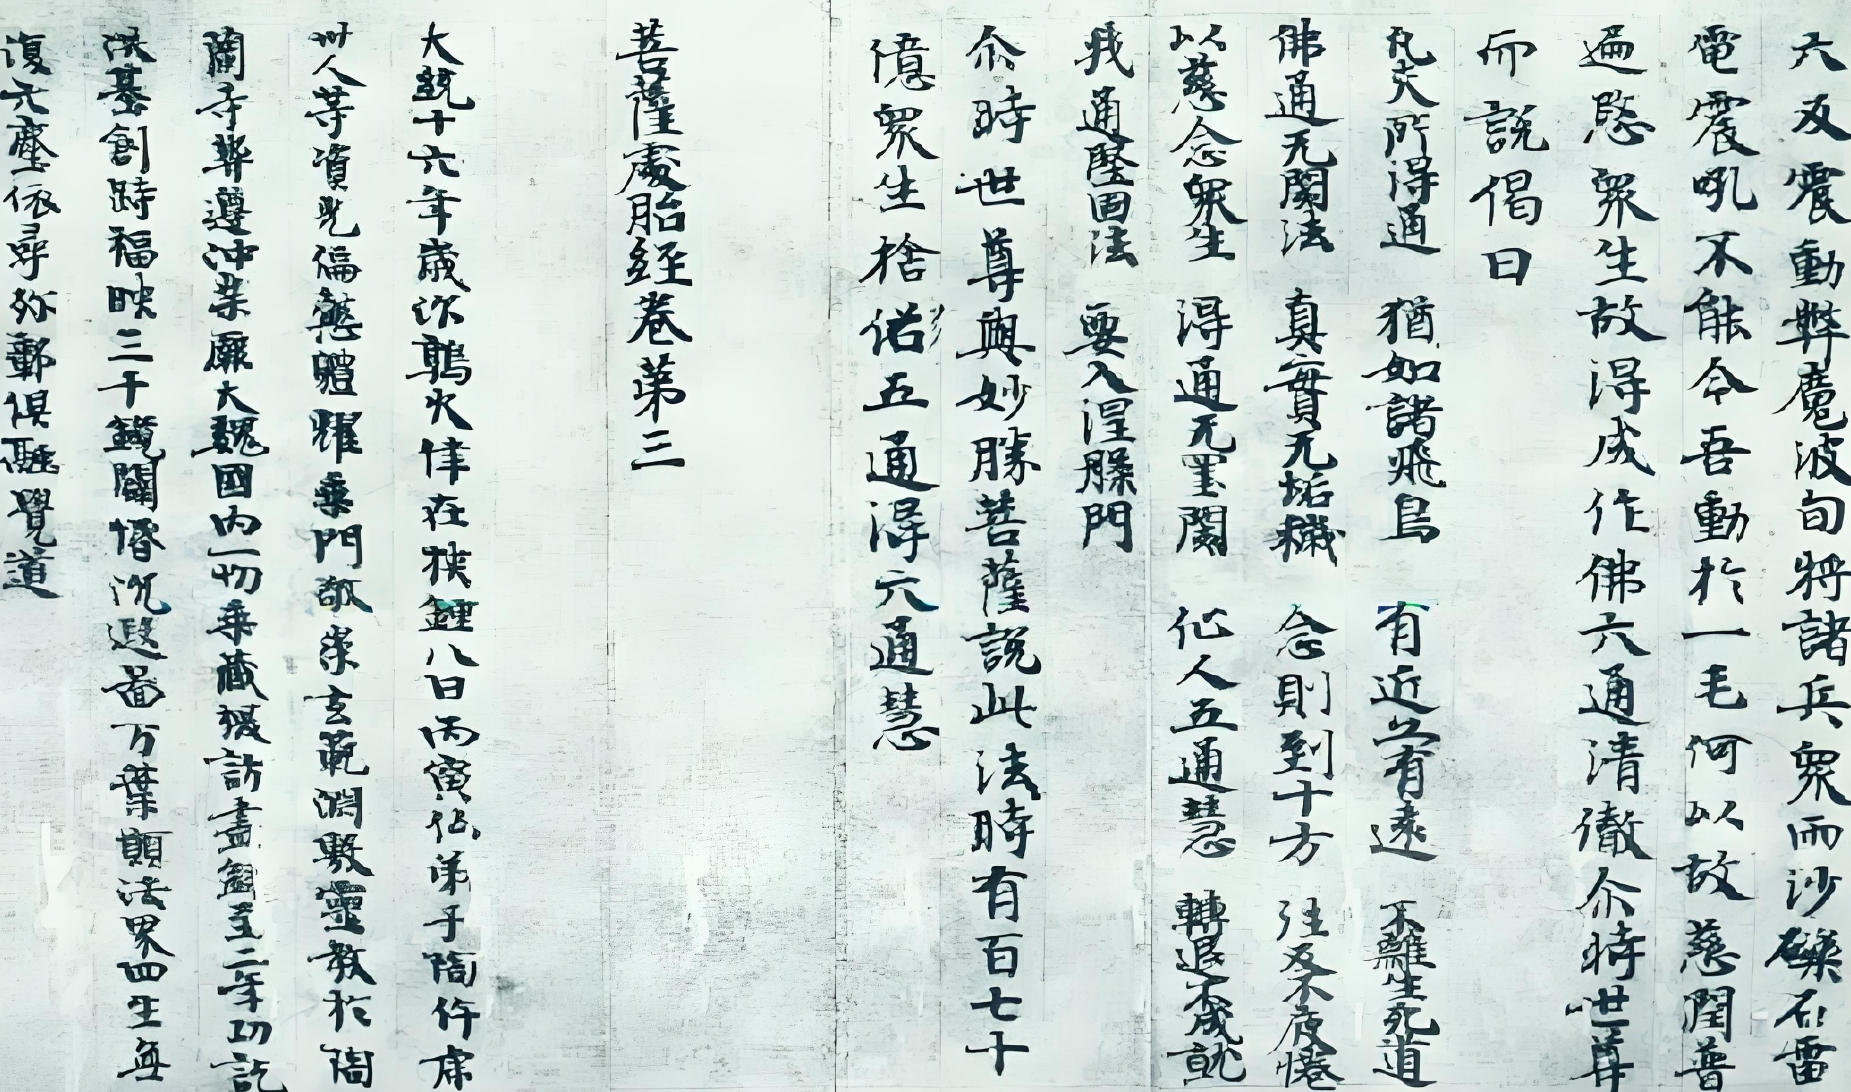 六反震動弊魔波旬將諸兵眾而沙礫石雷
電震吼不能令吾動於一毛何以故慈閏普
遍愍眾生故得成作佛六通清徹尒時世尊
而說偈曰
凡夫所得通 猶如諸飛鳥 有近亦有遠 不離生死道
佛通无閡法 真實无垢穢 念則到十方 往反不疲惓
以慈念眾生 得通无罣閡 仙人五通慧 轉退不成就
我通堅固法 要入涅槃門
尒時世尊與妙勝菩薩說此法時有百七十
億眾生捨俗五通得六通慧
菩薩處胎經卷第三
大統十六年歲次鶉火律在俠鍾八日丙寅佛弟子陶仵虎
卅人等資光偏慈體耀乘門敬崇玄範淵敷靈教於陶
蘭寺契遵沖業願大魏國內一切乘藏搜訪盡録至二年功訖
洪基創跱福映三千鏡闡惛沉遐啚万葉顯法界四生無
復六塵依尋弥鄞俱融覺道